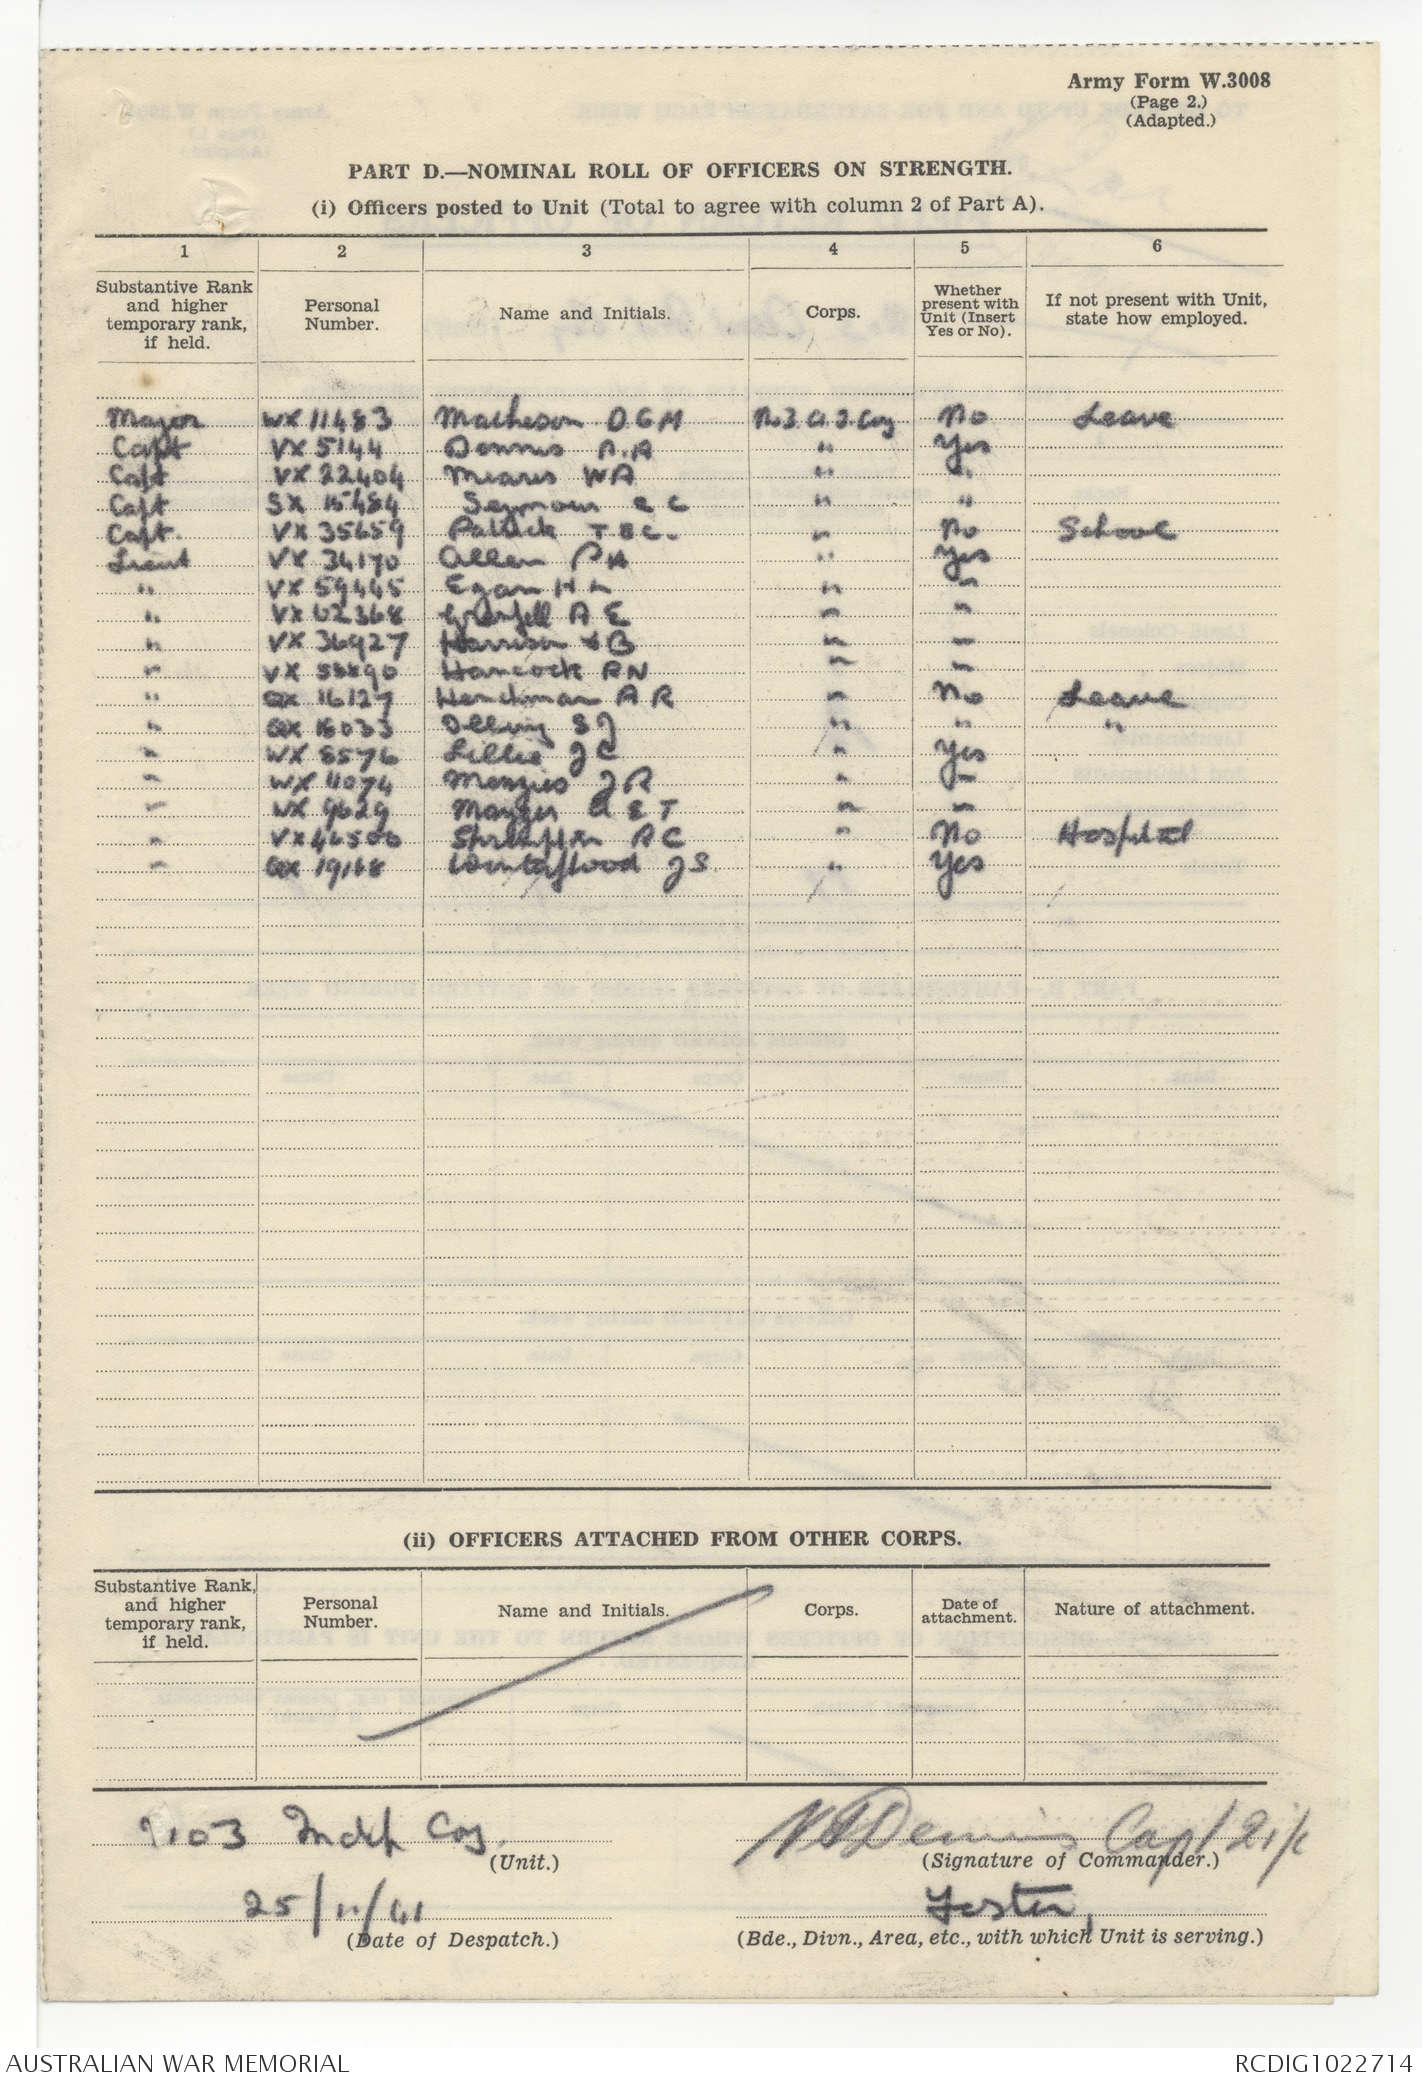 Army Form W.3008
(Page 2.)
(Adapted.)
PART D.—NOMINAL ROLL OF OFFICERS ON STRENGTH.
(i) Officers posted to Unit (Total to agree with column 2 of Part A).
1 2 3 4 5 6
Substantive Rank and higher temporary rank, if held. Personal Number. Name and Initials. Corps. Whether present with Unit (Insert Yes or No). If not present with Unit, state how employed.
Major WX 11483 Matheson D G M No 3. A. I. Coy No Leave
Capt VX 5144 Dennis A.A " Yes
Capt VX 22404 Mears W A " "
Capt SX 15484 Seymour R C " "
Capt. VX 35659 Patrick T B C. " No School
Lieut VX 34170 Allen P H " Yes
" VX 59445 Egan H L " "
" VX 62368 Grenfell A E " "
" VX 36927 Harrison B " "
" VX Hancock R N " "
" QX 16127 Henchman A R " No Leave
" QX 16033 S J " " "
" WX 8576 Lillie J C " Yes
" WX 11074 Menzies J R " "
" WX 9629 E T " "
" VX 46500 A C " No Hospital
" QX 19168 Winterflood J S. " Yes
(ii) OFFICERS ATTACHED FROM OTHER CORPS.
Substantive Rank, and higher temporary rank, if held. Personal Number. Name and Initials. Corps. Date of attachment. Nature of attachment.
Indep Coy.
(Unit.)
Dennis Capt 2 i/c
(Signature of Commander.)
25/11/41
(Date of Despatch.)
Foster,
(Bde., Divn., Area, etc., with which Unit is serving.)
AUSTRALIAN WAR MEMORIAL
RCDIG1022714